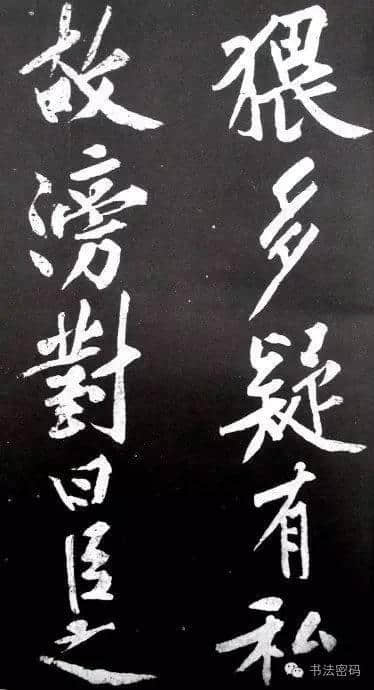 猥多疑有私
故滂對曰臣之
书法密码